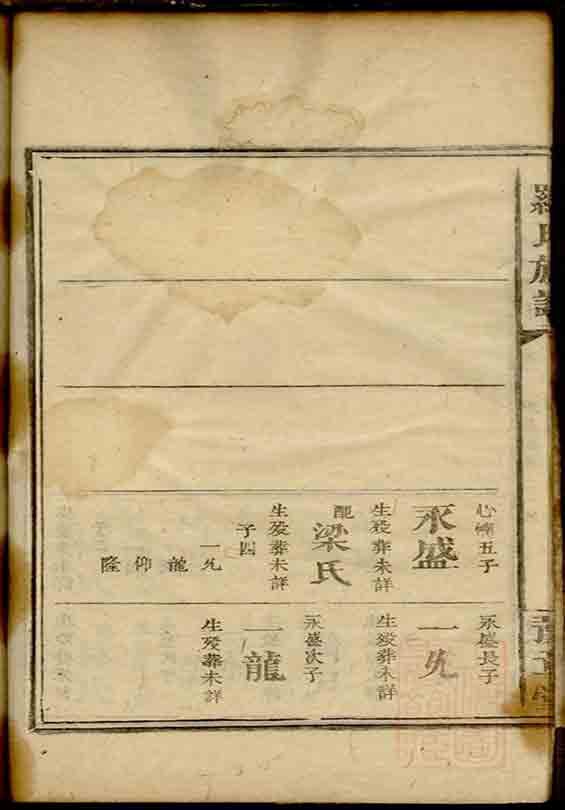 羅氏族譜
心蘭五子
永盛
生殁葬未詳
配
梁氏
生殁葬未詳
子四
一旡
龍
仰
隆
永盛長子
一旡
生殁葬未詳
永盛次子
一龍
生殁葬未詳
豫章堂